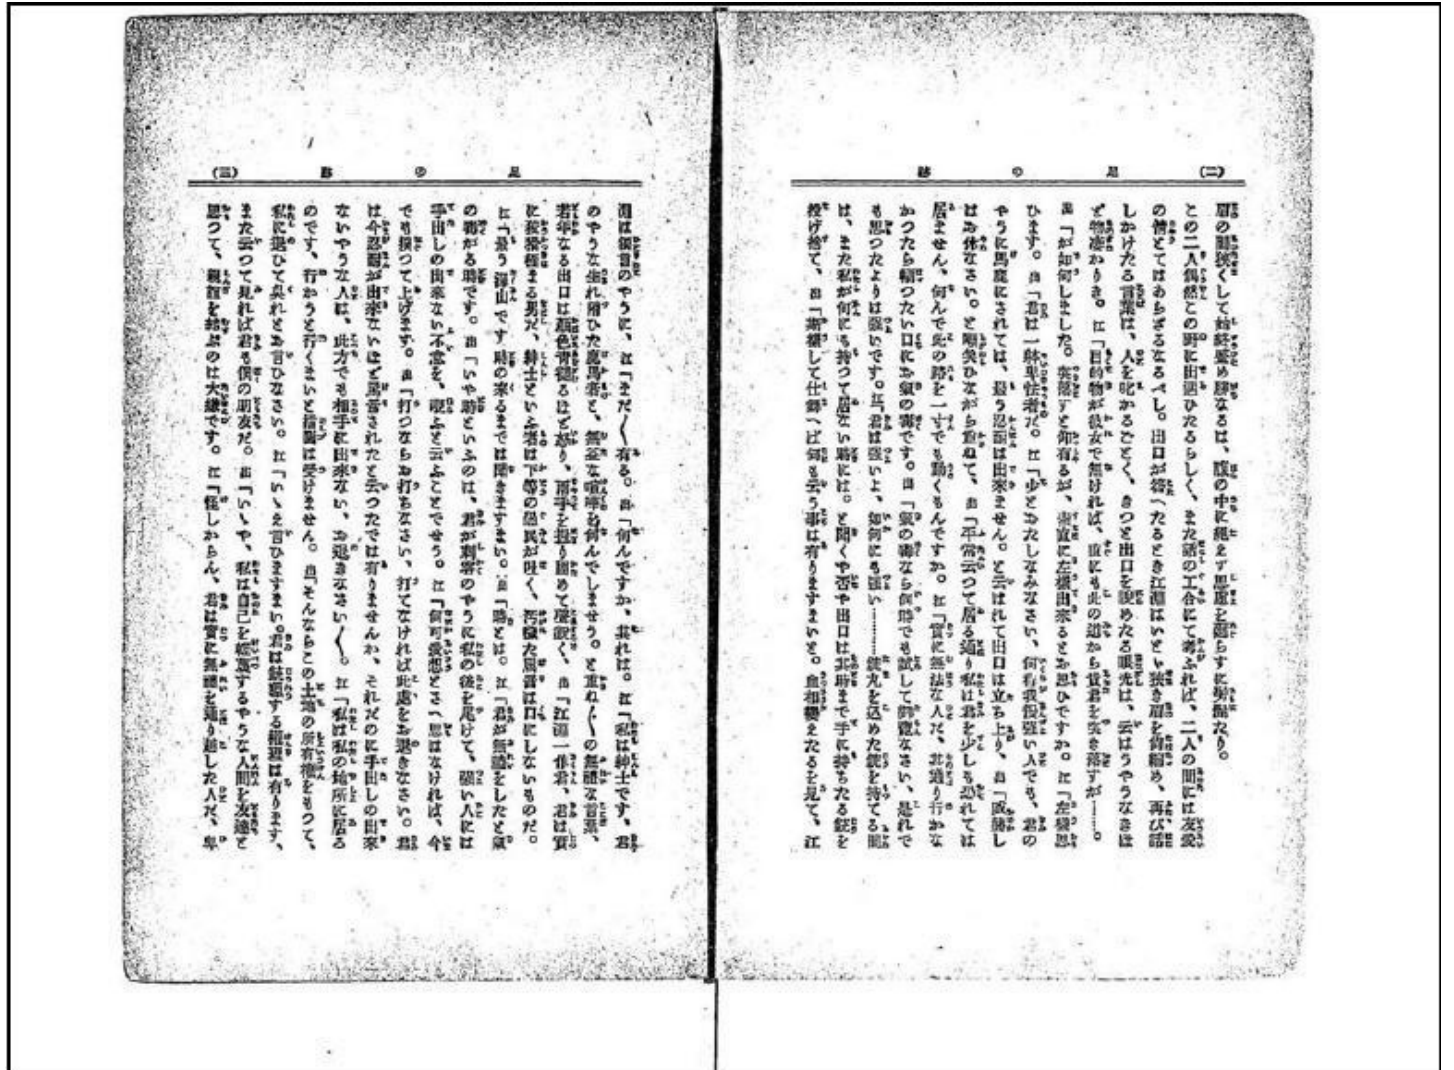 (二) 足の跡
眉の間狭くして始終顰め勝なるは、腹の中に絶えず思慮を廻らすに男振たり。
この二人偶然この野に出遇ひたるらしく、また話の工合にて考ふれば、二人の間には友愛
の情とてはあらざるなるべし。出口が答へたるとき江淵はいとゞ狭き眉を縮め、再び話
しかけたる言葉は、人を叱かるごとく、きつと出口を睨めたる眼光は、云はうやうなきほ
ど物凄かりき。江「目的物が彼女で無ければ、直にも此の道から貴君を突き落すが……。
出「が如何しました。突落すと仰有るが、素直に左様出来るとお思ひですか。江「左様思
ひます。出「君は一躰卑怯者だ。江「少とおたしなみなさい、何程我慢強い人でも、君の
やうに馬鹿にされては、最う忍耐は出来ません。と云はれて出口は立ち上り、出「威勝し
はお休なさい。と嘲笑ひながら重ねて、出「平常云つて居る通り私は君を少しも恐れては
居ません、何んで此の路を一寸でも動くもんですか。江「實に無法な人だ、其通り行かな
かつたら頼つたい口にお氣の毒です。出「氣の毒なら何時でも試して御覽なさい、是れで
も思つたよりは強いです。江「君は強いよ、如何にも強い……銃丸を込めた銃を持てる間
は、また私が何にも持つて居ない時には。と聞くや否や出口は其時まで手に持ちたる銃を
投げ捨て、出「斯樣して仕舞へば何も云う事は有りますまいと。血相變えたるを見て、江
(三) 足の跡
淵は獨言のやうに、江「まだ〱有る。出「何んですか、其れは。江「私は紳士です、君
のやうな生れ附ひた鹿馬者と、無益な喧嘩を何んでしませう。と重ね〱の無禮な言葉、
若年なる出口は顏色青褪るほど怒り、兩手を握り固めて聲鋭く、出「江淵一作君、君は實
に狡猾極まる男だ、紳士といふ者は下等の愚民が吐く、汚穢た罵言は口にしないものだ。
江「最う澤山です、時の來るまでは聞きますまい。出「時とは。江「君が無禮をしたと氣
の毒がる時です。出「いや時といふのは、君が刺客のやうに私の後を尾けて、強い人には
手出しの出來ない不意を、覗ふと云ふことでせう。江「何可愛想とさへ思はなければ、今
でも撲つて上げます。出「打つならお打ちなさい、打てなければ此處をお退きなさい。君
は今忍耐が出來ないほど罵言されたと云つたでは有りませんか、それだのに手出しの出來
ないやうな人は、此方でも相手に出來ない、お退きなさい〱。江「私は私の地所に居る
のです、行かうと行くまいと指圖は受けません。出「そんならこの土地の所有權をもつて、
私に退ひて呉れとお言ひなさい。江「いゝえ言ひますまい。君は銃獵する權理は有ります、
また云つて見れば君も僕の朋友だ。出「いゝや、私は自己を輕蔑するやうな人間を友達と
思つて、親誼を結ぶのは大嫌です。江「怪しからん、君は實に無禮を通り越した人だ、卑